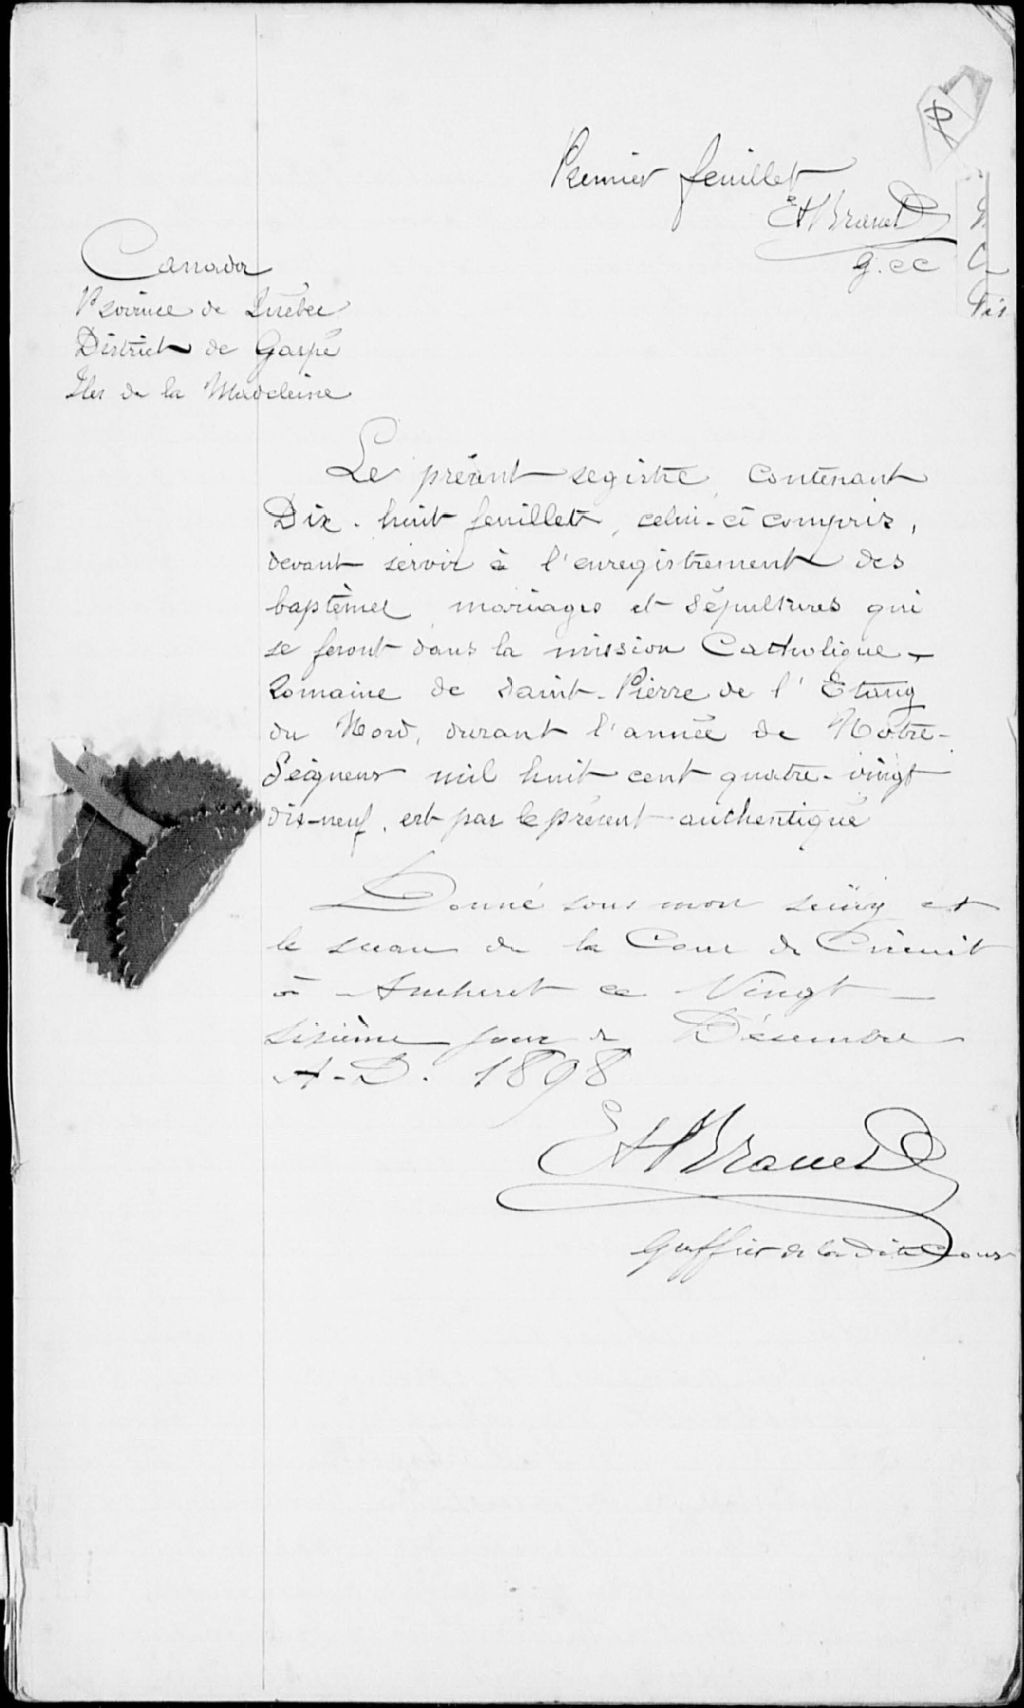 Premier feuillet
EHBrauet
g.cc
Canada
Province de Québec
District de Gaspé
Iles de la Madeleine
Le présent registre, contenant
Dix-huit feuillets, celui-ci compris,
devant servir à l'enregistrement des
baptêmes mariages et sépultures qui
se feront dans la mission Catholique-
Romaine de Saint-Pierre de l'Etang
du Nord, durant l'année de Notre-
Seigneur mil huit cent quatre-vingt
dix-neuf, est par le présent authentiqué
Donné sous mon seing et
le sceau de la Cour de Circuit
à Amherst ce Vingt
sixième jour de Décembre
A-D. 1898
Greffier de la dite Cour